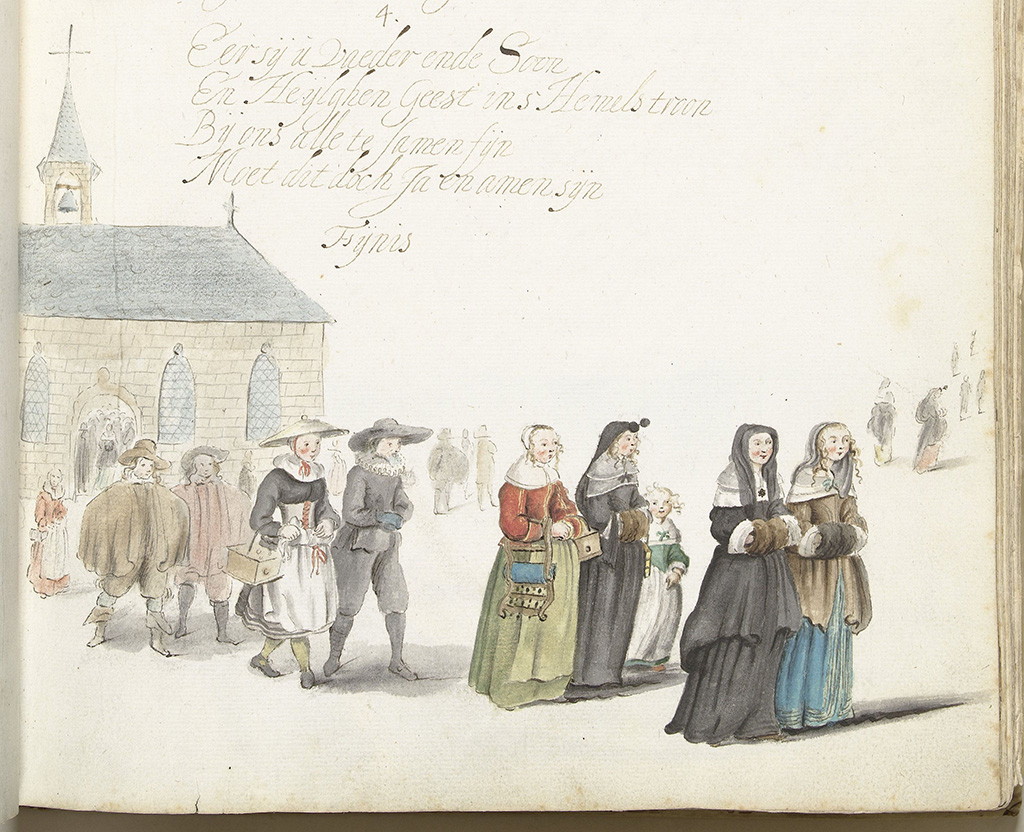 4.
Eer sij u Vaeder ende Soon
En Heijlghen Geest in s Hemels troon
Bij ons alle te samen sijn
Moet dit doch Ja en amen sijn
Fijnis